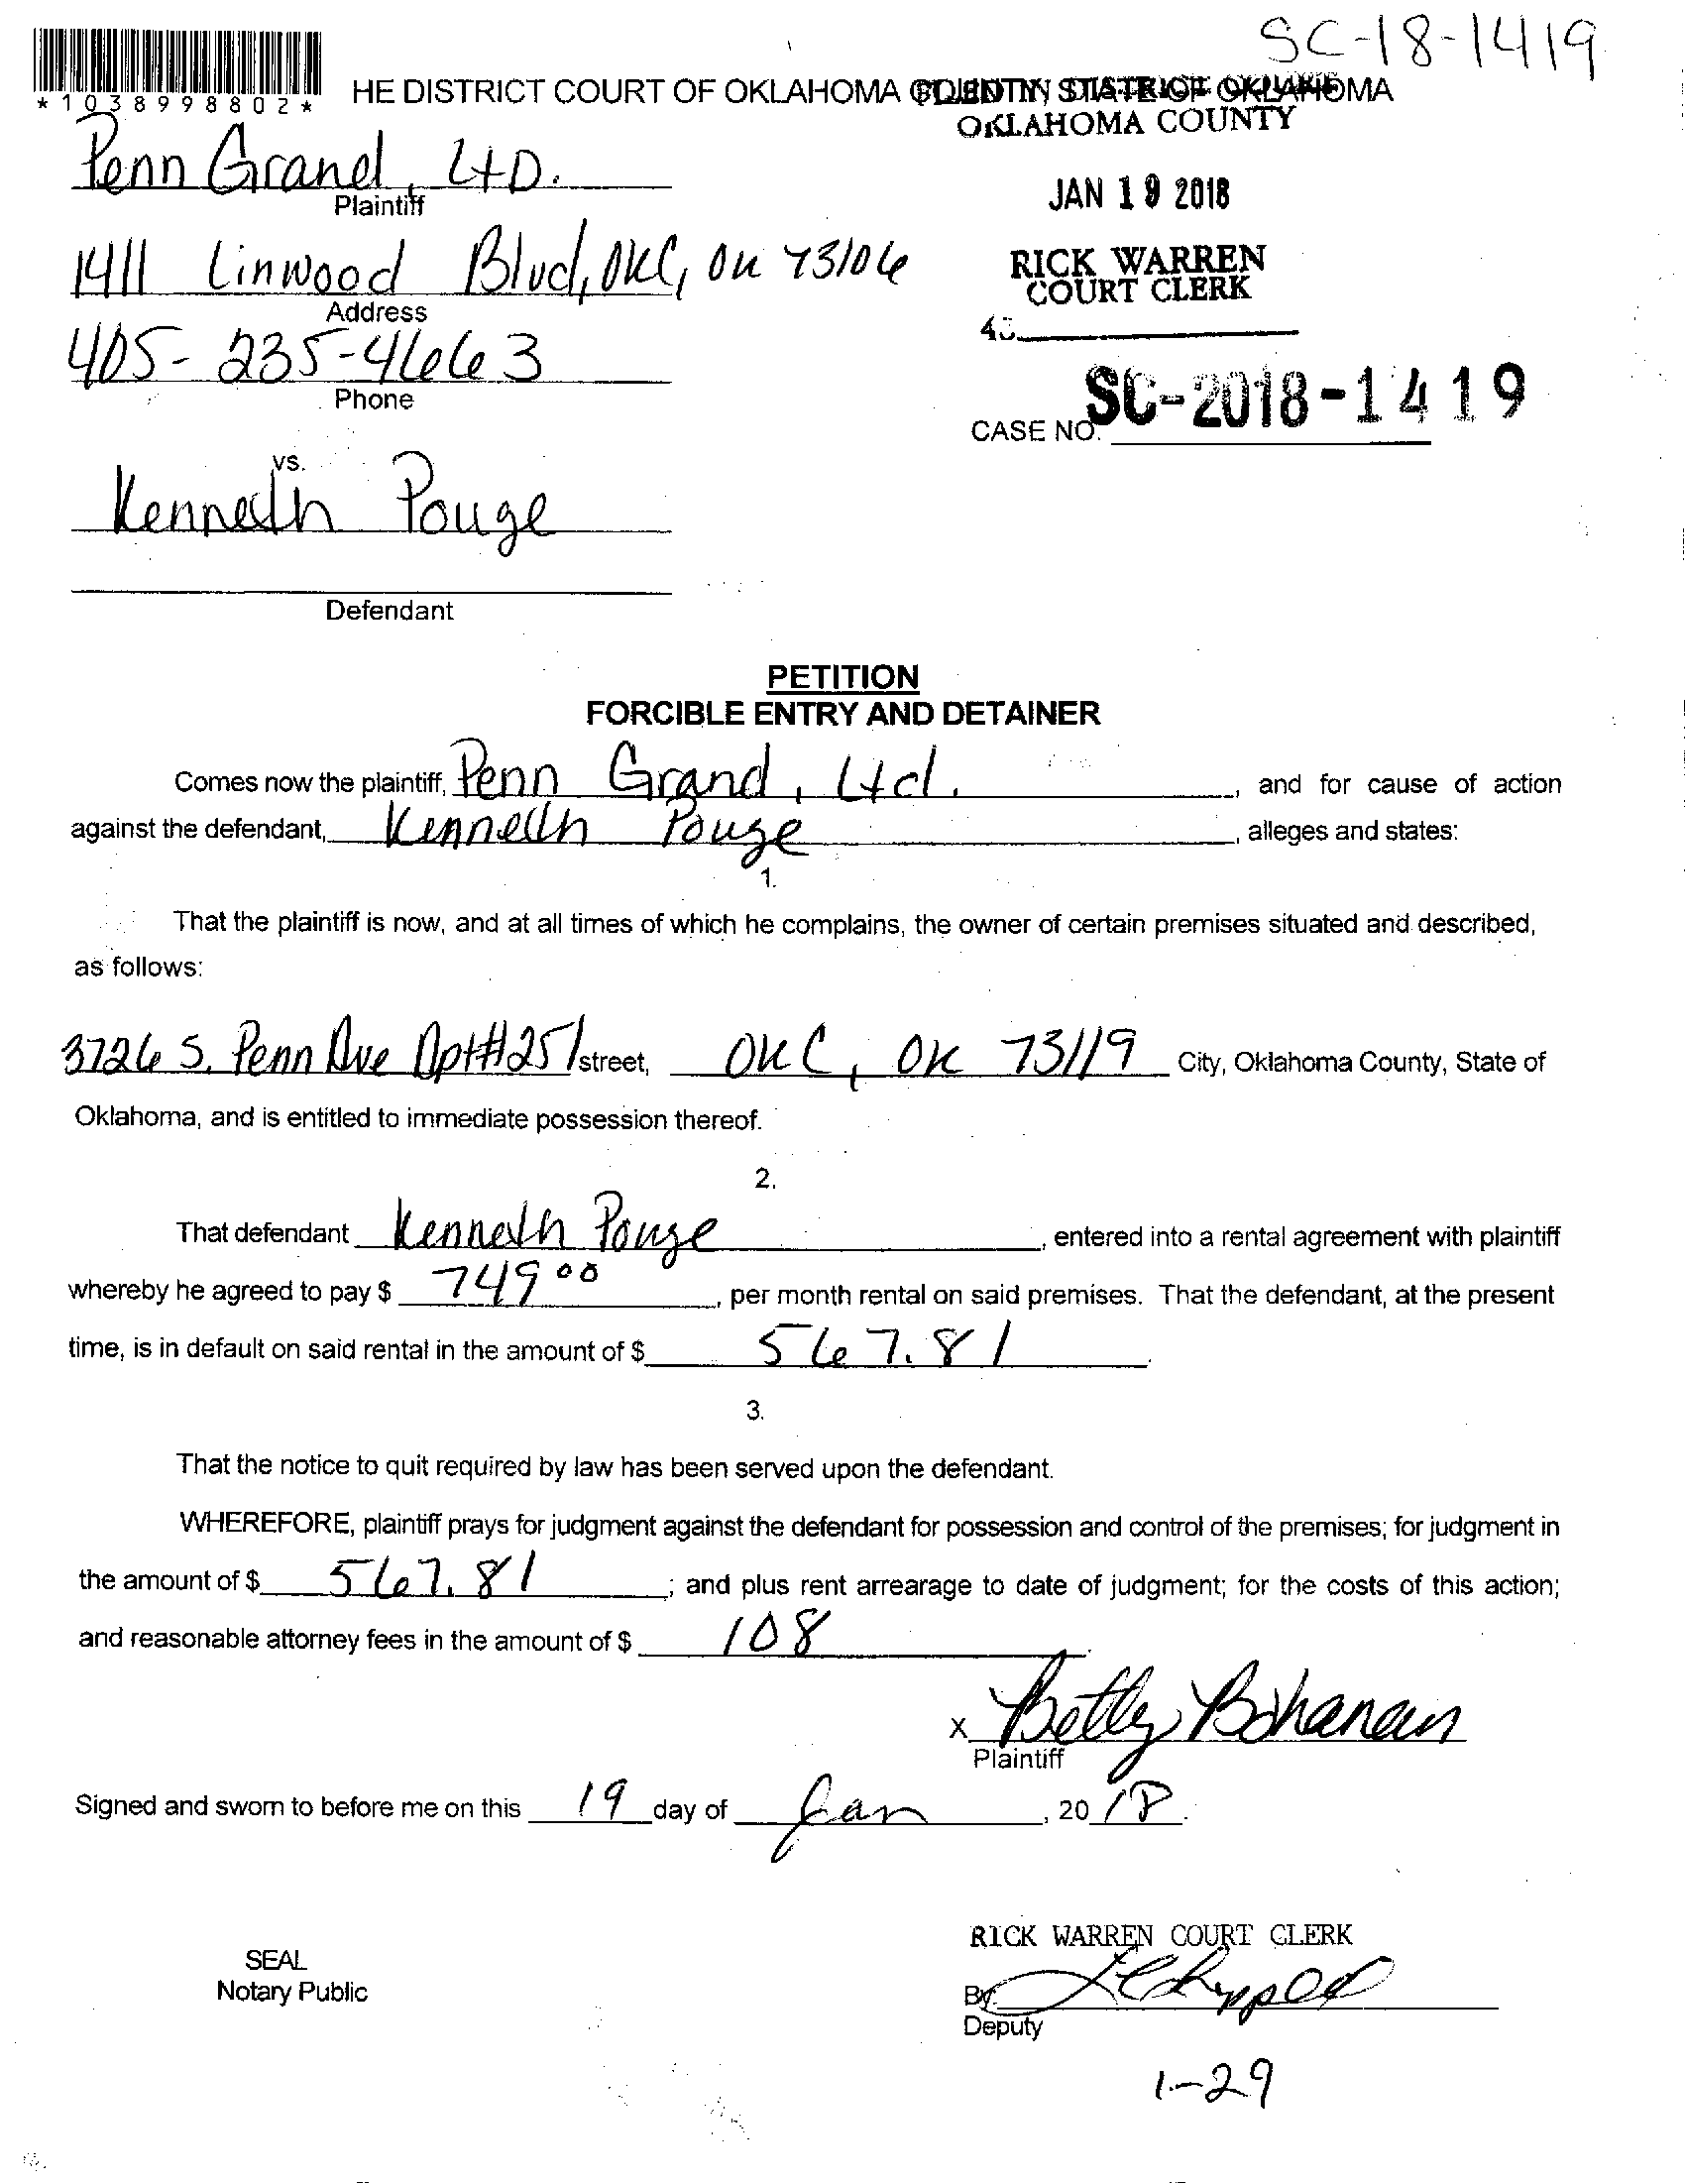 SC-18-1419
*1038998802*
HE DISTRICT COURT OF OKLAHOMA COUNTY, STATE OF OKLAHOMA
FILED IN DISTRICT COURT
OKLAHOMA COUNTY
Penn Grand, LtD.
Plaintiff
JAN 19 2018
1411 Linwood Blvd, OKC, OK 73106
Address
RICK WARREN
COURT CLERK
405-235-4663
Phone
CASE NO. SC-2018-1419
vs.
Kenneth Pouge
Defendant
PETITION
FORCIBLE ENTRY AND DETAINER
Comes now the plaintiff, Penn Grand, Ltd., and for cause of action
against the defendant, Kenneth Pouge, alleges and states:
1.
That the plaintiff is now, and at all times of which he complains, the owner of certain premises situated and described,
as follows:
3726 S. Penn Ave Apt#251 street, OKC, OK 73119 City, Oklahoma County, State of
Oklahoma, and is entitled to immediate possession thereof.
2.
That defendant Kenneth Pouge, entered into a rental agreement with plaintiff
whereby he agreed to pay $ 749 00, per month rental on said premises. That the defendant, at the present
time, is in default on said rental in the amount of $ 567.81.
3.
That the notice to quit required by law has been served upon the defendant.
WHEREFORE, plaintiff prays for judgment against the defendant for possession and control of the premises; for judgment in
the amount of $ 567.81; and plus rent arrearage to date of judgment; for the costs of this action;
and reasonable attorney fees in the amount of $ 108.
x Betty Bohanan
Plaintiff
Signed and sworn to before me on this 19 day of Jan, 20 18.
RICK WARREN COURT CLERK
SEAL
Notary Public
By:
Deputy
1-29